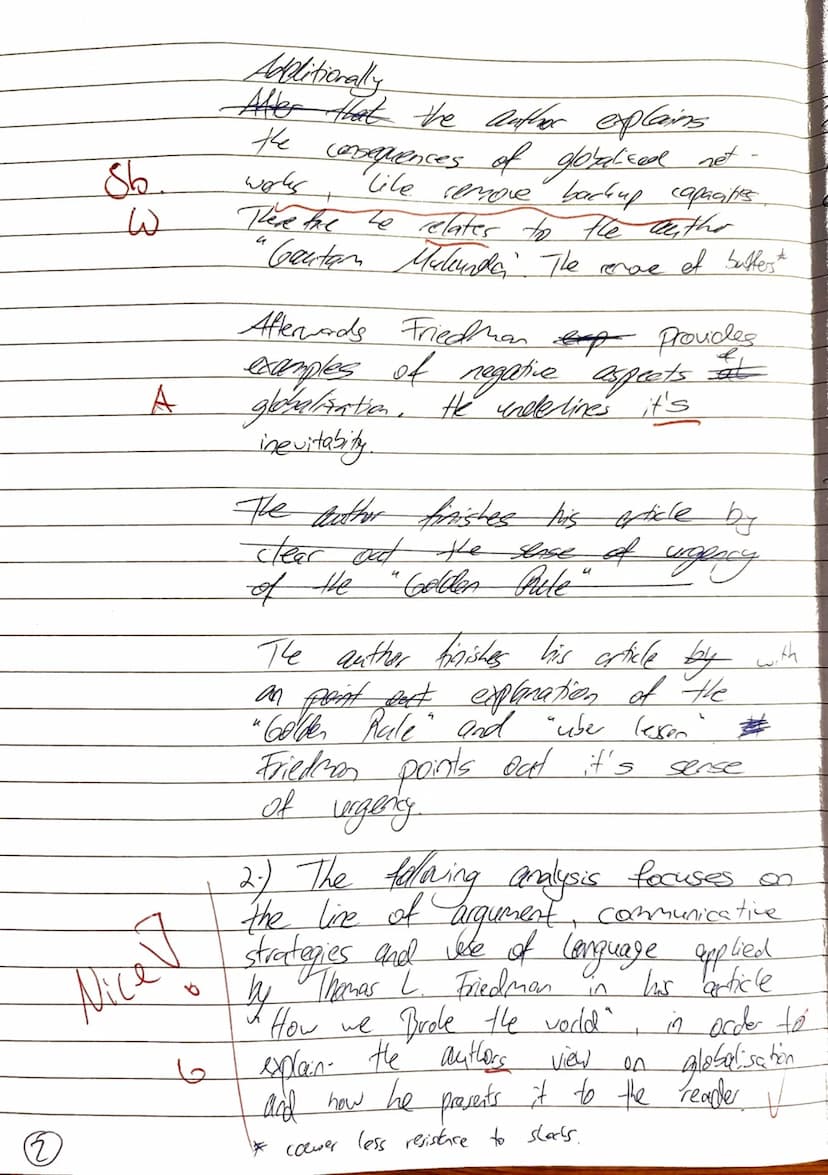 Additionally
After that the author explains
the consequences of globalised net-
Sb. works, like remove backup capacities.
W Therefore he relates to the author
"Gautam Mukunda". The remove of buffers*
Afterwards Friedman exp provides
examples of negative aspects of
A globalisation. He underlines it's
inevitabity.
The author finishes his article by
clear out the sense of urgency
of the "Golden Rule"
The author finishes his article by with
an point out explanation of the
"Golden Rule" and "uber lesson"
Friedman points out it's sense
of urgency.
2.) The following analysis focuses on
the line of argument, communicative
strategies and use of language applied
Nice! by Thomas L. Friedman in his article
"How we Broke the world", in order to
G explain the authors view on globalisation
and how he presents it to the reader.
2 * less resistence to